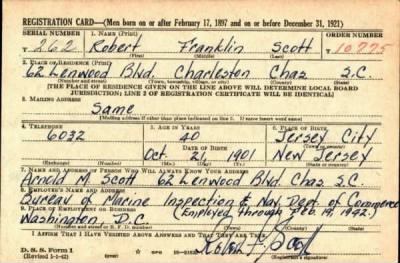 REGISTRATION CARD—(Men born on or after February 17, 1897 and on or before December 31, 1921)
SERIAL NUMBER 1. NAME (Print) ORDER NUMBER
T 262 Robert Franklin Scott T 10,775
(First) (Middle) (Last)
2. PLACE OF RESIDENCE (Print)
62 Lenwood Blvd. Charleston Chas. S.C.
(Number and street) (Town, township, village, or city) (County) (State)
[THE PLACE OF RESIDENCE GIVEN ON THE LINE ABOVE WILL DETERMINE LOCAL BOARD
JURISDICTION; LINE 2 OF REGISTRATION CERTIFICATE WILL BE IDENTICAL]
3. MAILING ADDRESS
Same
[Mailing address if other than place indicated on line 2. If same insert word same]
4. TELEPHONE 5. AGE IN YEARS 6. PLACE OF BIRTH
6032 40 Jersey City
DATE OF BIRTH (Town or county)
Oct. 21 1901 New Jersey
(Exchange) (Number) (Mo.) (Day) (Yr.) (State or country)
7. NAME AND ADDRESS OF PERSON WHO WILL ALWAYS KNOW YOUR ADDRESS
Arnold M. Scott 62 Lenwood Blvd. Chas. S.C.
8. EMPLOYER'S NAME AND ADDRESS
Bureau of Marine Inspection & Nav. Dept. of Commerce
9. PLACE OF EMPLOYMENT OR BUSINESS (Employed through Feb. 19, 1942.)
Washington, D.C.
(Number and street or R. F. D. number) (Town) (County) (State)
I AFFIRM THAT I HAVE VERIFIED ABOVE ANSWERS AND THAT THEY ARE TRUE.
D. S. S. Form 1
(Revised 1-1-42) (over)
Robert F. Scott